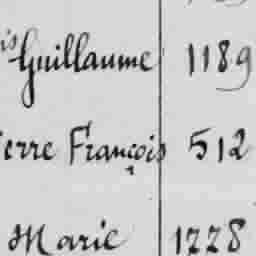 is Guillaume 1189
erre François 512
Marie 1228